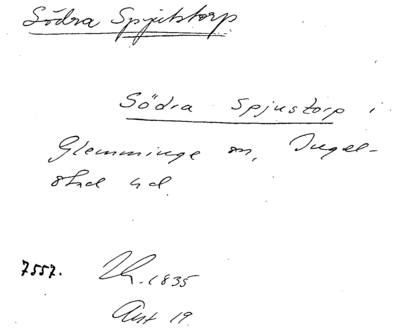 Södra Spjutstorp
Södra Spjustorp i
Glemminge sn, Ingel-
stad hd.
7557. Lh. 1835
Avst 19